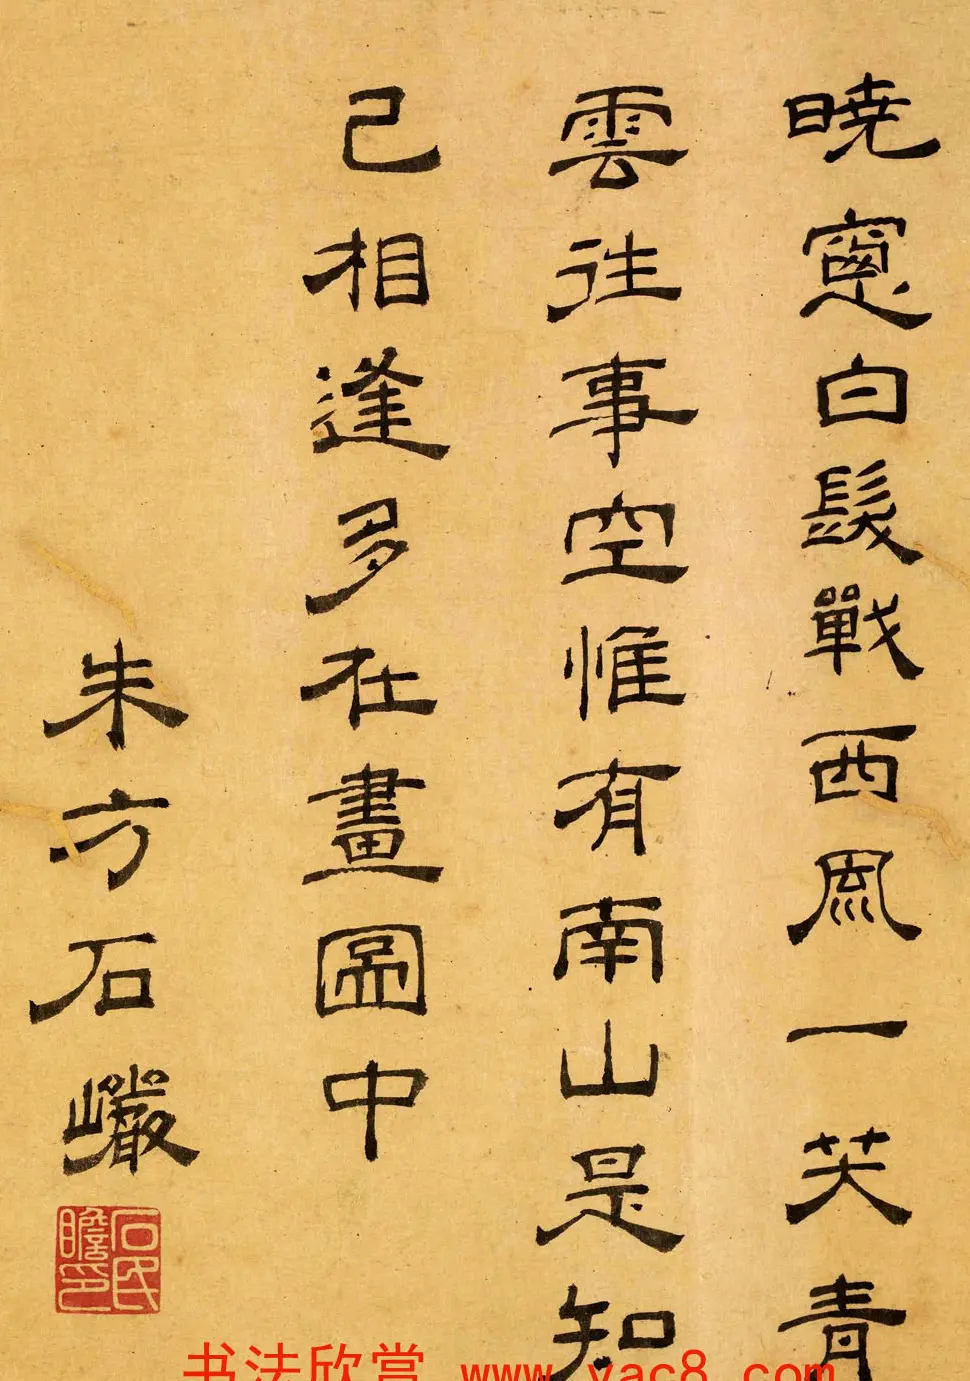 曉窻白髮戰西風一笑青
雲往事空惟有南山是知
己相逢多在畫圖中
朱方石巖
石氏瞻印
书法欣赏 www.yac8.com